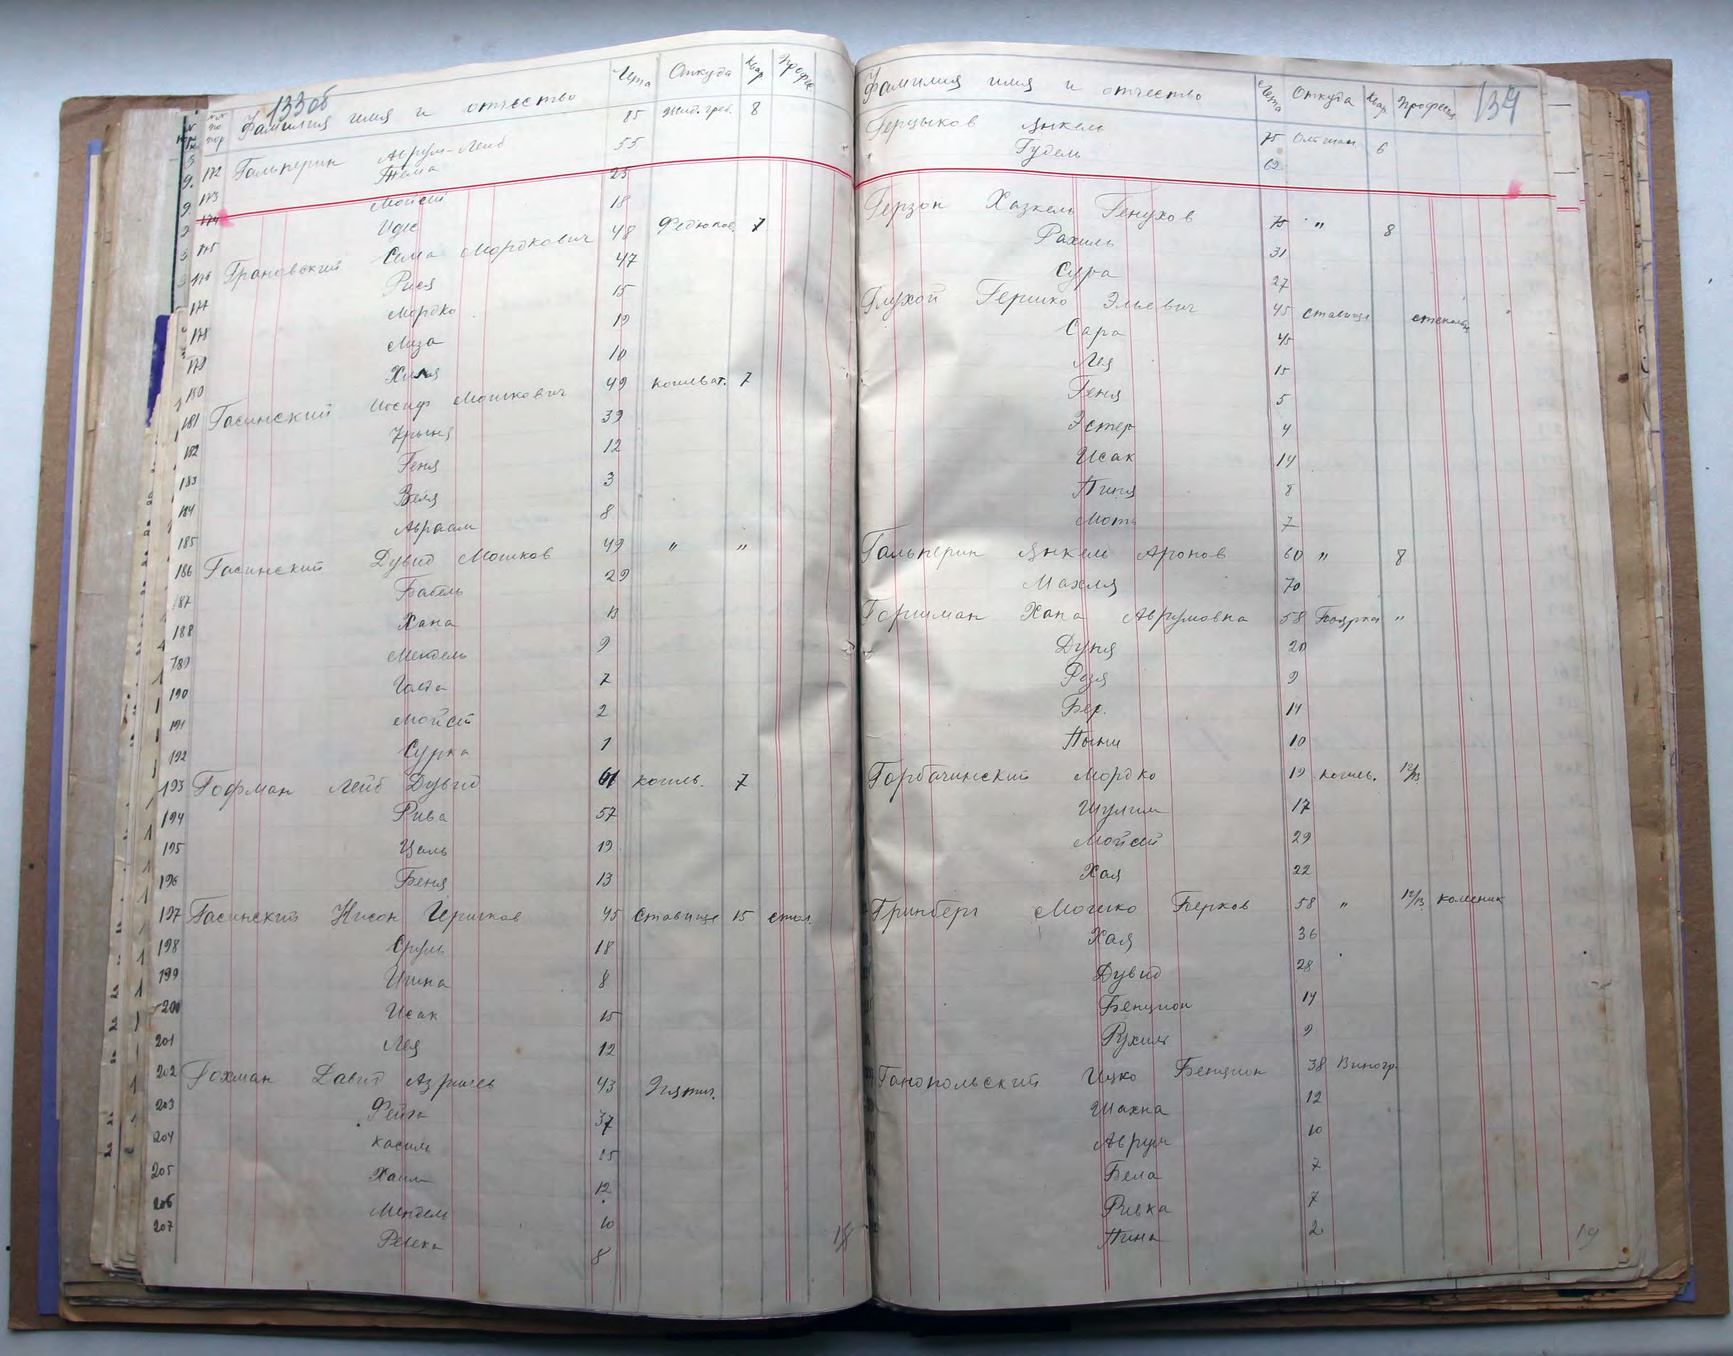 133об
№№ по пор Фамилия имя и отчество Лета Откуда Квар Професс
172 Гальперин Аврум-Лейб 85 Жит.греб. 8
173 Тема 55
174 Мойсей 23
175 Идес 18
176 Грановский Сема Мордкович 48 Федюков. 7
177 Рися 47
178 Мордко 15
179 Лиза 19
180 Хися 10
181 Гасинский Иосиф Мошкович 49 кошеват. 7
182 Крыня 39
183 Геня 12
184 Веля 3
185 Авраам 8
186 Гасинский Дувид Мошков 49 " "
187 Бабель 29
188 Хана 13
189 Мендель 9
190 Голта 7
191 Мойсей 2
192 Сурка 1
193 Гофман Лейб Дувид 61 кошев. 7
194 Рива 57
195 Цаль 19
196 Беня 13
197 Гасинский Нисон Гершков 45 Ставище 15 стол.
198 Сруль 18
199 Ишна 8
200 Исак 15
201 Лея 12
202 Гохман Давид Азрилев 43
203 Фейга 37
204 Касиль 15
205 Хаим 12
206 Мендель 10
207 Ревека 8
18
134
Фамилия имя и отчество Лета Откуда Квар Професия
Герцыков Янкель 75 Ольшан 6
Гудель 62
Герзон Хазкель Генухов 75 " 8
Рахиль 31
Сура 27
Глухой Гершко Эльевич 45 ставище стекольщ
Сара 45
Лея 15
Геня 5
Эстер 4
Исак 14
Пиня 8
Мотя 7
Гальперин Янкель Аронов 60 " 8
Махля 70
Горшман Хана Аврумовна 58 Боярка "
Дуня 20
Розя 9
Бер. 14
Пыни 10
Горбачинский Мордко 19 кошев. 12/13
Шулим 17
Мойсей 29
Хая 22
Гринберг Мошко Берков 58 " 12/13 колесник
Хая 36
Дувид 28
Бенцион 14
Рухиль 9
Ганопольский Ицко Бенцион 38 Виногр.
Шахна 12
Аврум 10
Бела 7
Ривка 7
Пина 2
19